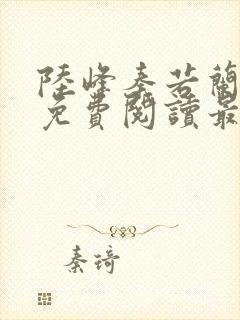 陸峰秦若蘭
免費閱讀最
秦琦